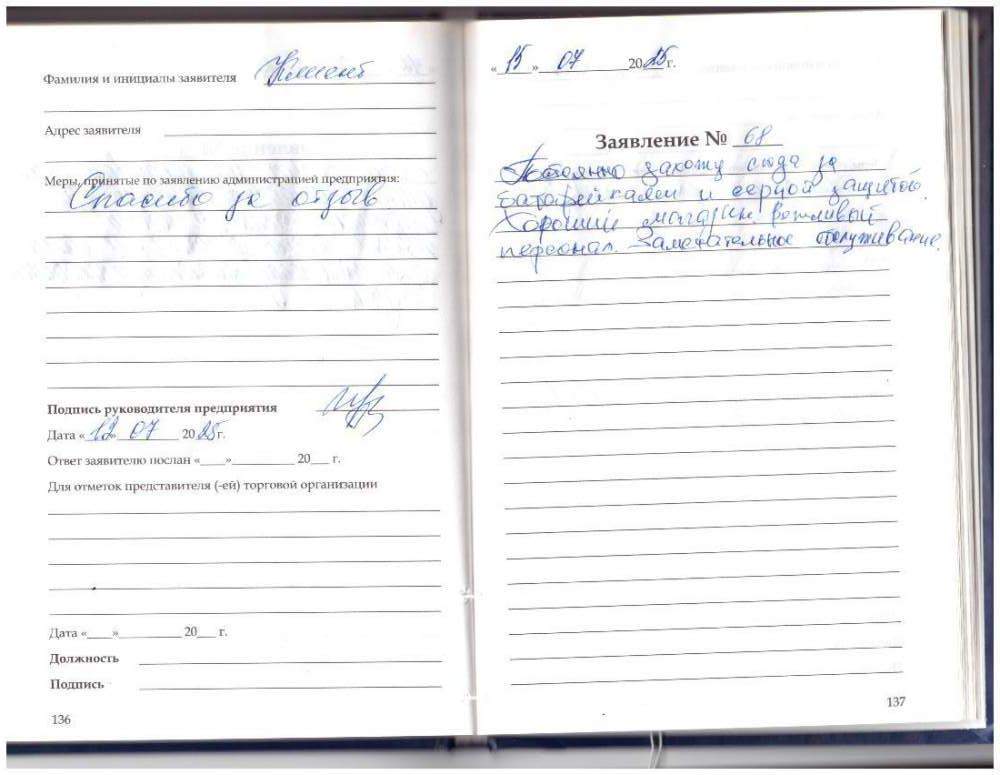 Фамилия и инициалы заявителя Клиент
Адрес заявителя
Меры, принятые по заявлению администрацией предприятия:
Спасибо за отзыв
Подпись руководителя предприятия
Дата «12» 07 2025 г.
Ответ заявителю послан «____»__________ 20___ г.
Для отметок представителя (-ей) торговой организации
Дата «____»__________ 20___ г.
Должность
Подпись
136
«15» 07 2025 г.
Заявление № 68
Постоянно захожу сюда за
батарейками и защитой.
Хороший магазин. Вежливый
персонал. Замечательное обслуживание.
137